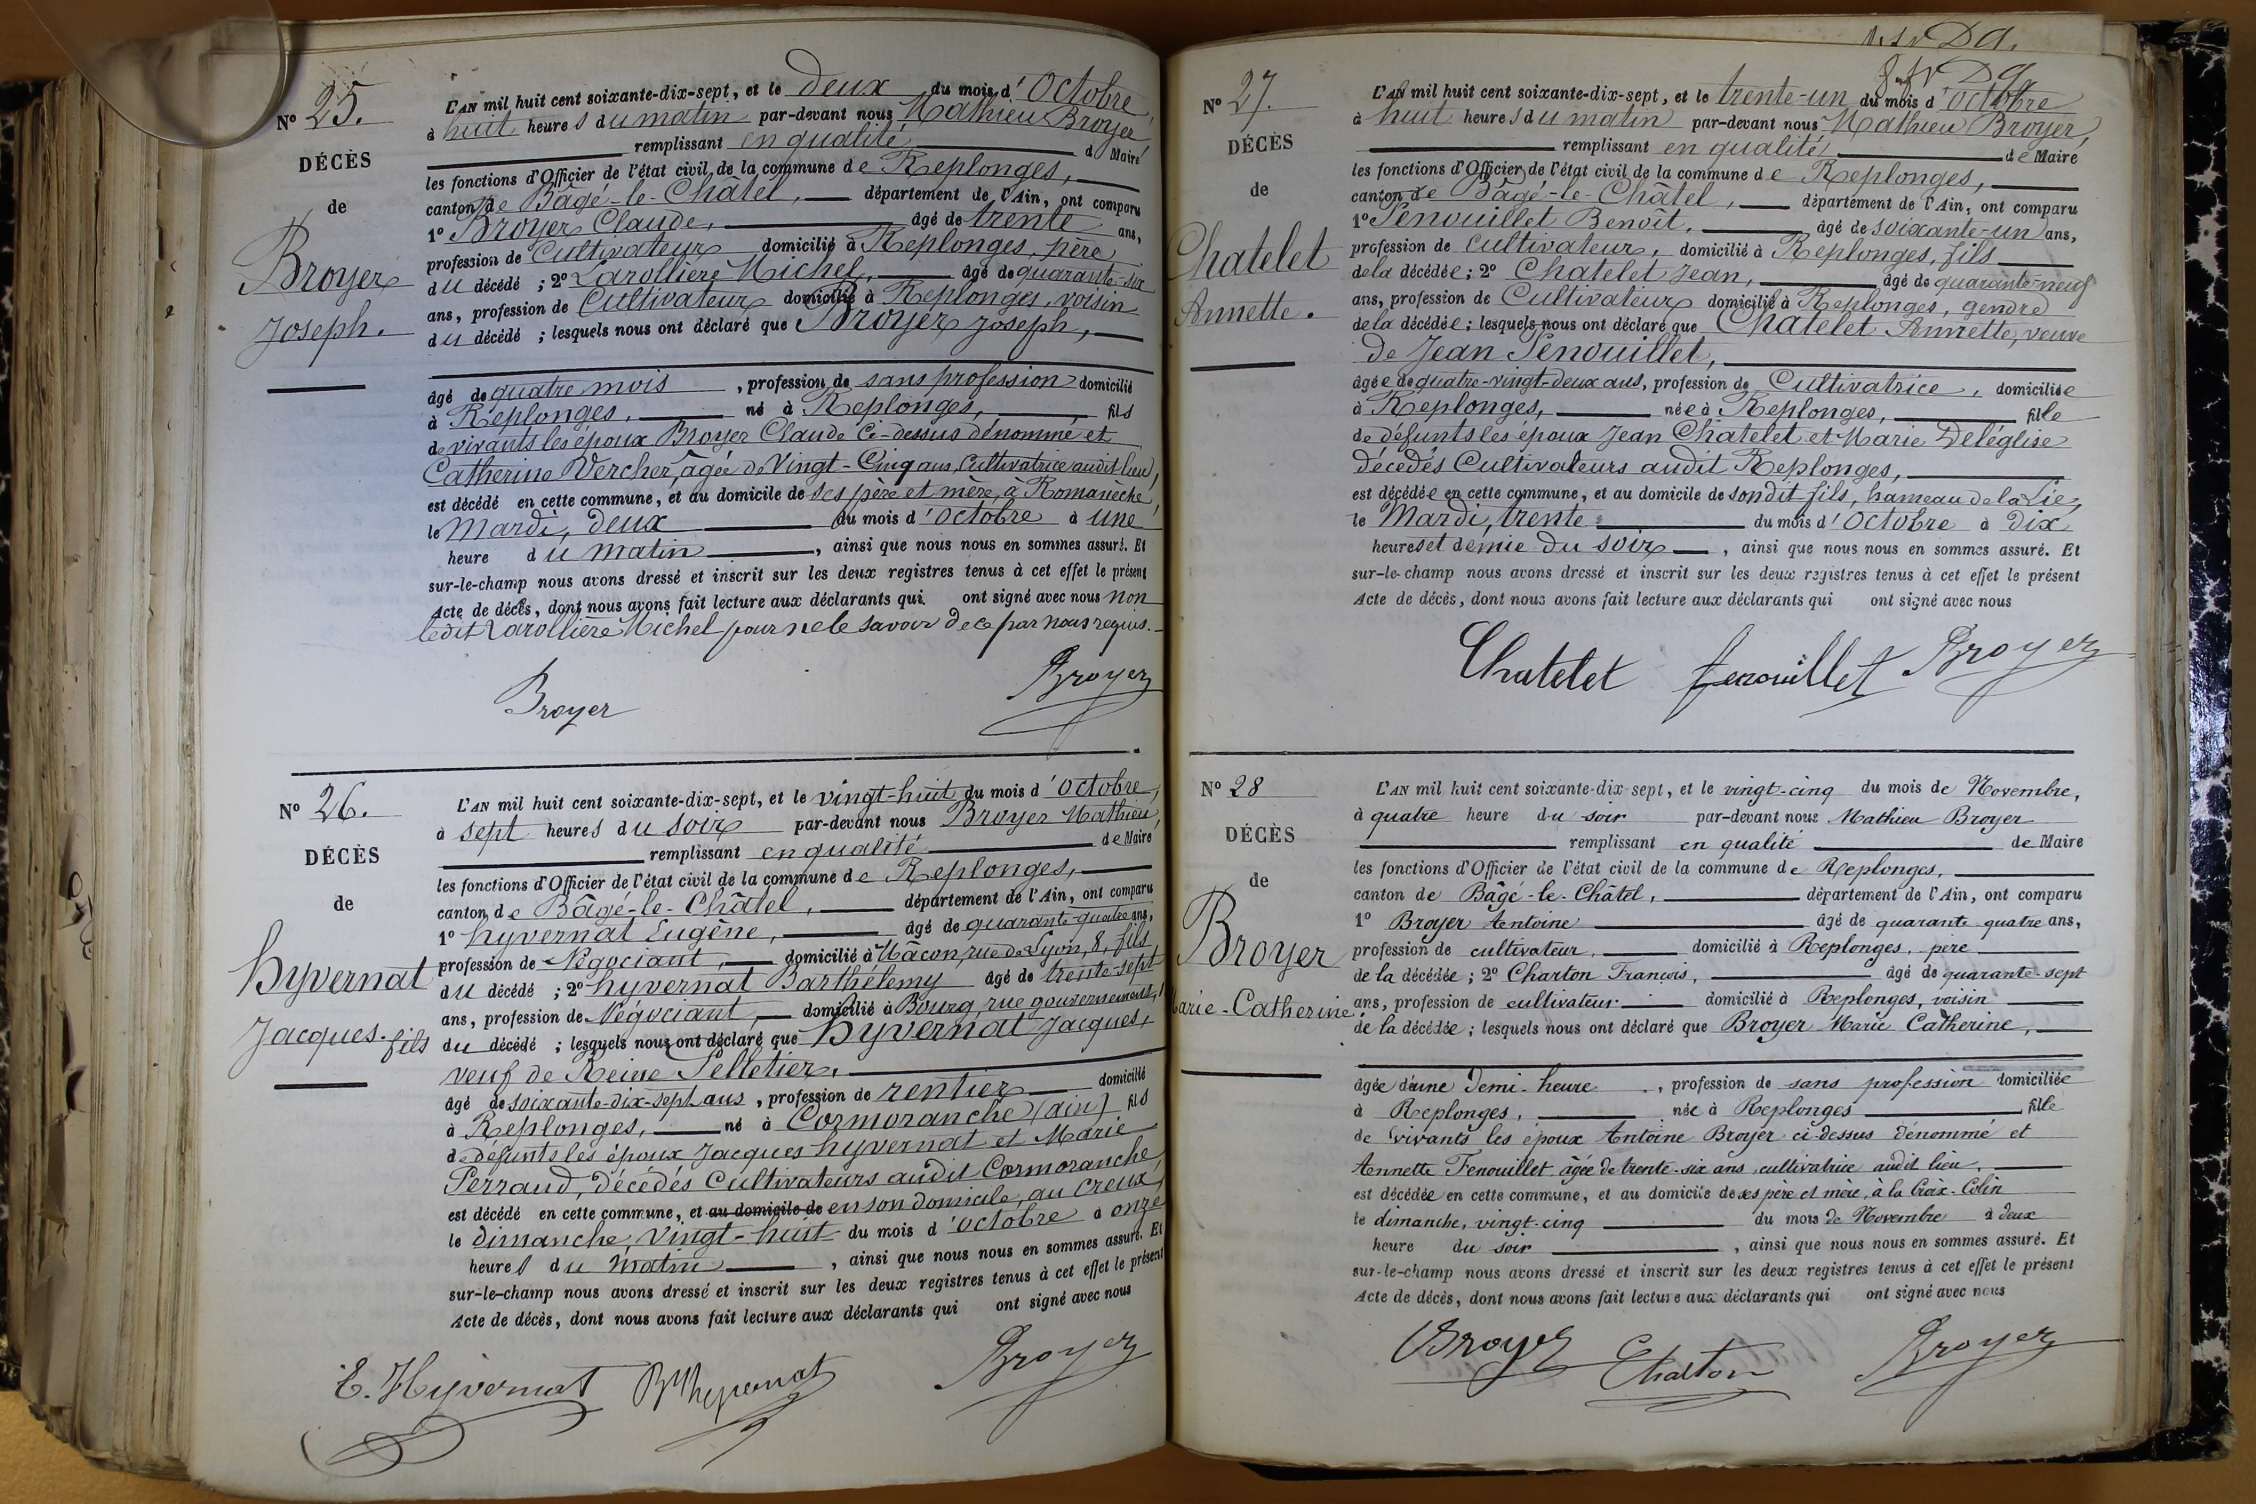 N° 25.
DÉCÈS
de
Broyer
Joseph.
L'AN mil huit cent soixante-dix-sept, et le deux du mois d'Octobre,
à huit heures du matin par-devant nous Mathieu Broyer
remplissant en qualité de Maire
les fonctions d'Officier de l'état civil de la commune de Replonges,
canton de Bâgé-le-Châtel, département de l'Ain, ont comparu
1° Broyer Claude, âgé de trente ans,
profession de Cultivateur domicilié à Replonges, père
du décédé ; 2° Larollière Michel, âgé de quarante-six
ans, profession de Cultivateur domicilié à Replonges, voisin
du décédé ; lesquels nous ont déclaré que Broyer Joseph,
âgé de quatre mois, profession de sans profession domicilié
à Replonges, né à Replonges, fils
de vivants les époux Broyer Claude Ci-dessus dénommé et
Catherine Vercher, âgée de Vingt-Cinq ans, Cultivatrice audit lieu,
est décédé en cette commune, et au domicile de ses père et mère, à Romanèche,
le Mardi, deux du mois d'Octobre à une
heure du matin, ainsi que nous nous en sommes assuré. Et
sur-le-champ nous avons dressé et inscrit sur les deux registres tenus à cet effet le présent
Acte de décès, dont nous avons fait lecture aux déclarants qui ont signé avec nous non
ledit Larollière Michel pour ne le savoir de ce par nous requis.
Broyer Broyer
N° 26.
DÉCÈS
de
hyvernat
Jacques. fils
L'AN mil huit cent soixante-dix-sept, et le vingt-huit du mois d'Octobre,
à sept heures du soir par-devant nous Broyer Mathieu,
remplissant en qualité de Maire
les fonctions d'Officier de l'état civil de la commune de Replonges,
canton de Bâgé-le-Châtel, département de l'Ain, ont comparu
1° hyvernat Eugène, âgé de quarante-quatre ans,
profession de Négociant, domicilié à Mâcon, rue de Lyon, 8, fils
du décédé ; 2° hyvernat Barthélemy âgé de trente-sept
ans, profession de Négociant, domicilié à Bourg, rue gouvernement,
du décédé ; lesquels nous ont déclaré que hyvernat Jacques,
veuf de Reine Pelletier,
âgé de soixante-dix-sept ans, profession de rentier domicilié
à Replonges, né à Cormoranche (ain) fils
de défunts les époux Jacques hyvernat et Marie
Perraud, décédés Cultivateurs audit Cormoranche,
est décédé en cette commune, et au domicile de en son domicile, au creux,
le dimanche, vingt-huit du mois d'Octobre à onze
heures du matin, ainsi que nous nous en sommes assuré. Et
sur-le-champ nous avons dressé et inscrit sur les deux registres tenus à cet effet le présent
Acte de décès, dont nous avons fait lecture aux déclarants qui ont signé avec nous
E. Hyvernat Bmy hyvernat Broyer
N° 27.
DÉCÈS
de
Chatelet
Annette.
L'AN mil huit cent soixante-dix-sept, et le trente-un du mois d'Octobre
à huit heures du matin par-devant nous Mathieu Broyer,
remplissant en qualité de Maire
les fonctions d'Officier de l'état civil de la commune de Replonges,
canton de Bâgé-le-Châtel, département de l'Ain, ont comparu
1° Fenouillet Benoît, âgé de soixante-un ans,
profession de cultivateur, domicilié à Replonges, fils
de la décédée ; 2° Chatelet Jean, âgé de quarante-neuf
ans, profession de Cultivateur domicilié à Replonges, gendre
de la décédée ; lesquels nous ont déclaré que Chatelet Annette, veuve
de Jean Fenouillet,
âgée de quatre-vingt-deux ans, profession de Cultivatrice, domiciliée
à Replonges, née à Replonges, fille
de défunts les époux Jean Chatelet et Marie Deléglise
décédés Cultivateurs audit Replonges,
est décédée en cette commune, et au domicile de son dit fils, hameau de la Lie,
le Mardi, trente du mois d'Octobre à dix
heures et demie du soir, ainsi que nous nous en sommes assuré. Et
sur-le-champ nous avons dressé et inscrit sur les deux registres tenus à cet effet le présent
Acte de décès, dont nous avons fait lecture aux déclarants qui ont signé avec nous
Chatelet fenouillet Broyer
N° 28
DÉCÈS
de
Broyer
Marie-Catherine
L'AN mil huit cent soixante-dix-sept, et le vingt-cinq du mois de Novembre,
à quatre heure du soir par-devant nous Mathieu Broyer
remplissant en qualité de Maire
les fonctions d'Officier de l'état civil de la commune de Replonges,
canton de Bâgé-le-Châtel, département de l'Ain, ont comparu
1° Broyer Antoine âgé de quarante quatre ans,
profession de cultivateur, domicilié à Replonges, père
de la décédée ; 2° Charton François, âgé de quarante-sept
ans, profession de cultivateur domicilié à Replonges, voisin
de la décédée ; lesquels nous ont déclaré que Broyer Marie Catherine,
âgée d'une Demi-heure, profession de sans profession domiciliée
à Replonges, née à Replonges fille
de vivants les époux Antoine Broyer ci-dessus dénommé et
Annette Fenouillet, âgée de trente-six ans, cultivatrice audit lieu,
est décédée en cette commune, et au domicile de ses père et mère, à la Croix-Colin
le dimanche, vingt-cinq du mois de Novembre à deux
heure du soir, ainsi que nous nous en sommes assuré. Et
sur-le-champ nous avons dressé et inscrit sur les deux registres tenus à cet effet le présent
Acte de décès, dont nous avons fait lecture aux déclarants qui ont signé avec nous
Broyer Charton Broyer